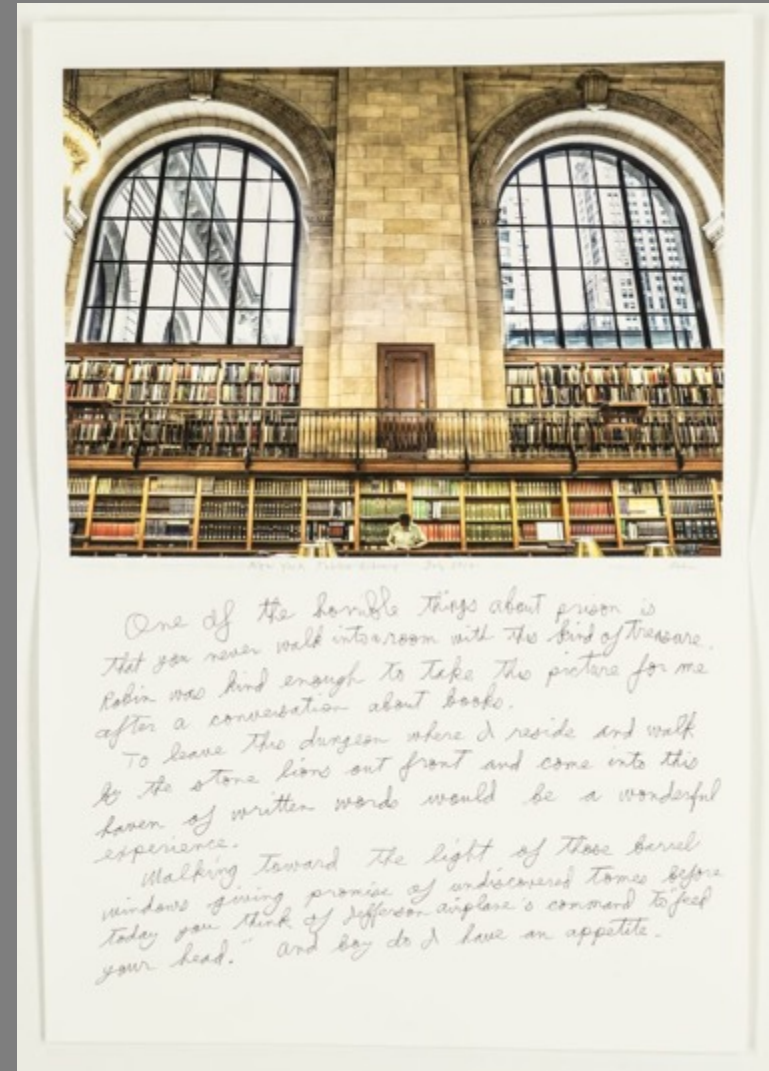 New York Public Library
One of the horrible things about prison is
that you never walk into a room with this kind of treasure.
Robin was kind enough to take this picture for me
after a conversation about books.
To leave this dungeon where I reside and walk
by the stone lions out front and come into this
haven of written words would be a wonderful
experience.
Walking toward the light of those barrel
windows giving promise of undiscovered tomes before
today you think of Jefferson airplane's command to "feed
your head." And boy do I have an appetite.